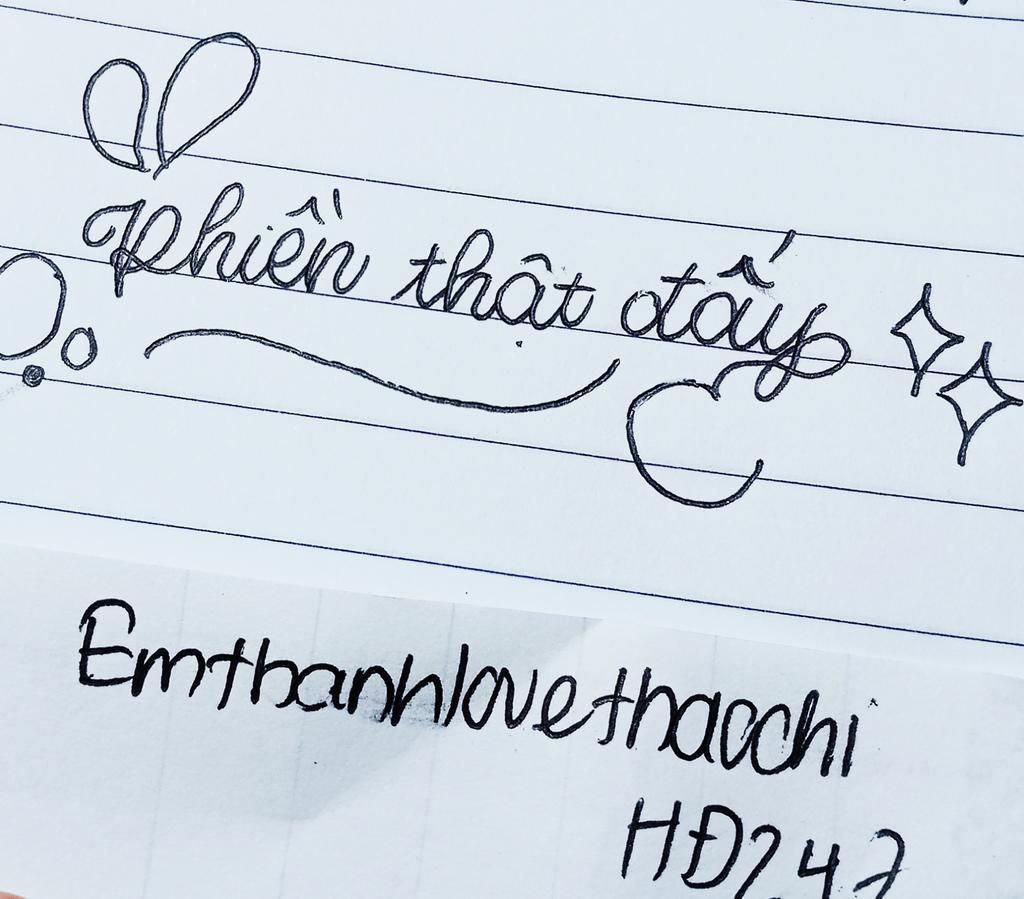 phiền thật đấy
Emthanhlovethaochi
HĐ247